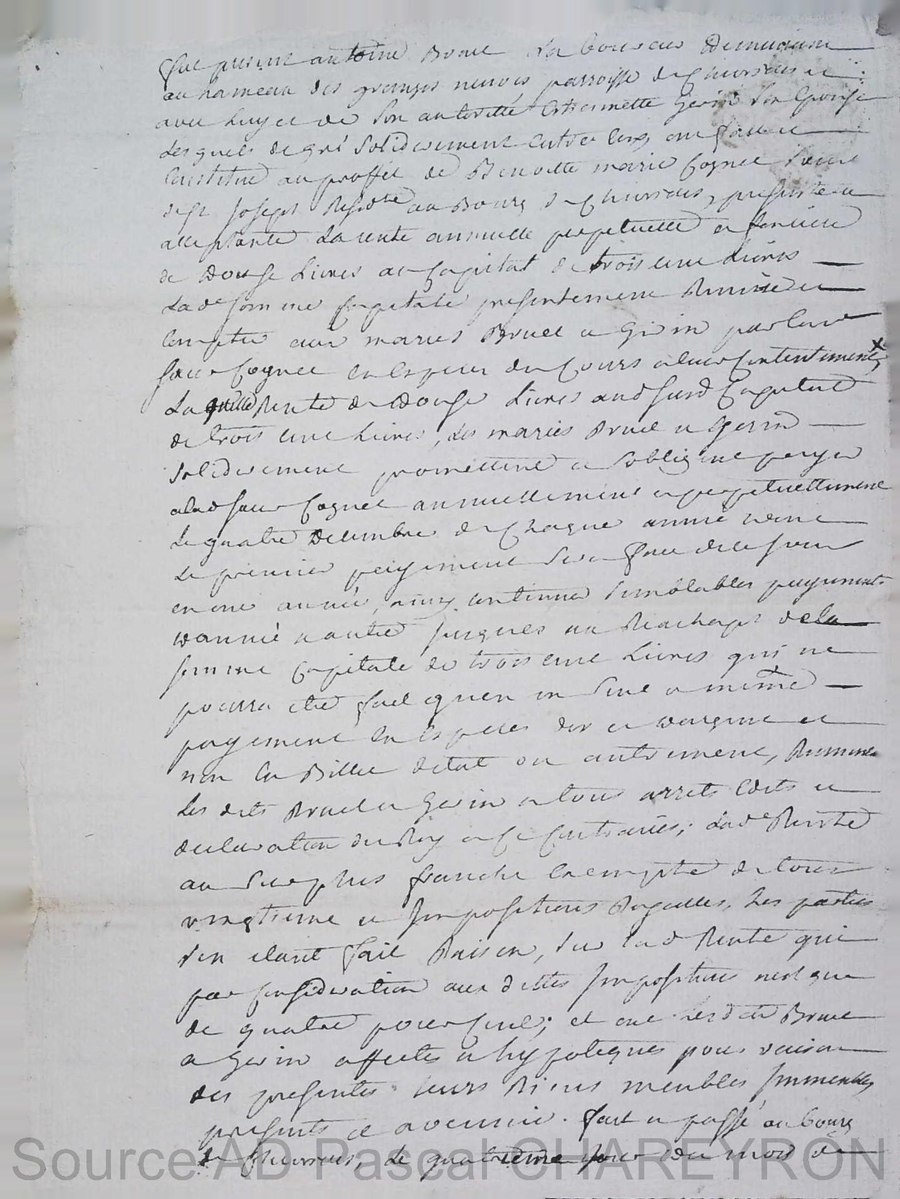 fut present antoine Bruel Laboureur Demeurant
au hameau des granges paroisse de Chavrais et
avec luy et de son autorité Estiennette Gerin son Epouse
Lesquels de gré solidairement entre eux ont fait et
Constitué au proffit de Benoitte marie Cognet soeur
de st Joseph Reste au Bourg de Chavrais, presente et
acceptante La rente annuelle perpetuelle et fonciere
de Douse Livres au Capital de trois cent Livres
Lade somme Capitale presentement Remise et
Comptée aux mariés Bruel et Gerin par lade
soeur Cognet en Especes du Cours a leur Contentement, x
Laquelle Rente de Douse Livres audt susd Capital
de trois cent Livres, Les mariés Bruel et Gerin
solidairement promettent et s'obligent payer
a lad soeur Cognet annuellement et perpetuellement
Le quatre Decembre de Chaque année dont
Le premier payement sera fait de ce jour
en une année, ainsy continuer semblables payements
d'année a autre jusques au Rachapt de la
somme Capitale de trois cent Livres qui ne
pourra etre fait qu'en un seul et même
payement en Especes d'or et d'argent et
non en Billet d'etat ou autrement, Renonceant
Les dits Bruel et Gerin a tous arrets Edits et
declaration du Roy a ce Contraires; Lade Rente
au surplus franche Exempte de tous
vingtieme et Impositions Royalles, Les parties
s'en etant fait Raison, sur lad Rente qui
par Consideration aux dittes Impositions n'est que
de quatre pour cent; et ont Lesdits Bruel
et Gerin affectés et hypoteques pour raison
des presentes leurs Biens meubles Immeubles
presents et avennir. fait et passé au bourg
de Chavrais, Le quatrieme jour du mois de
Source AD Pascal CHAREYRON